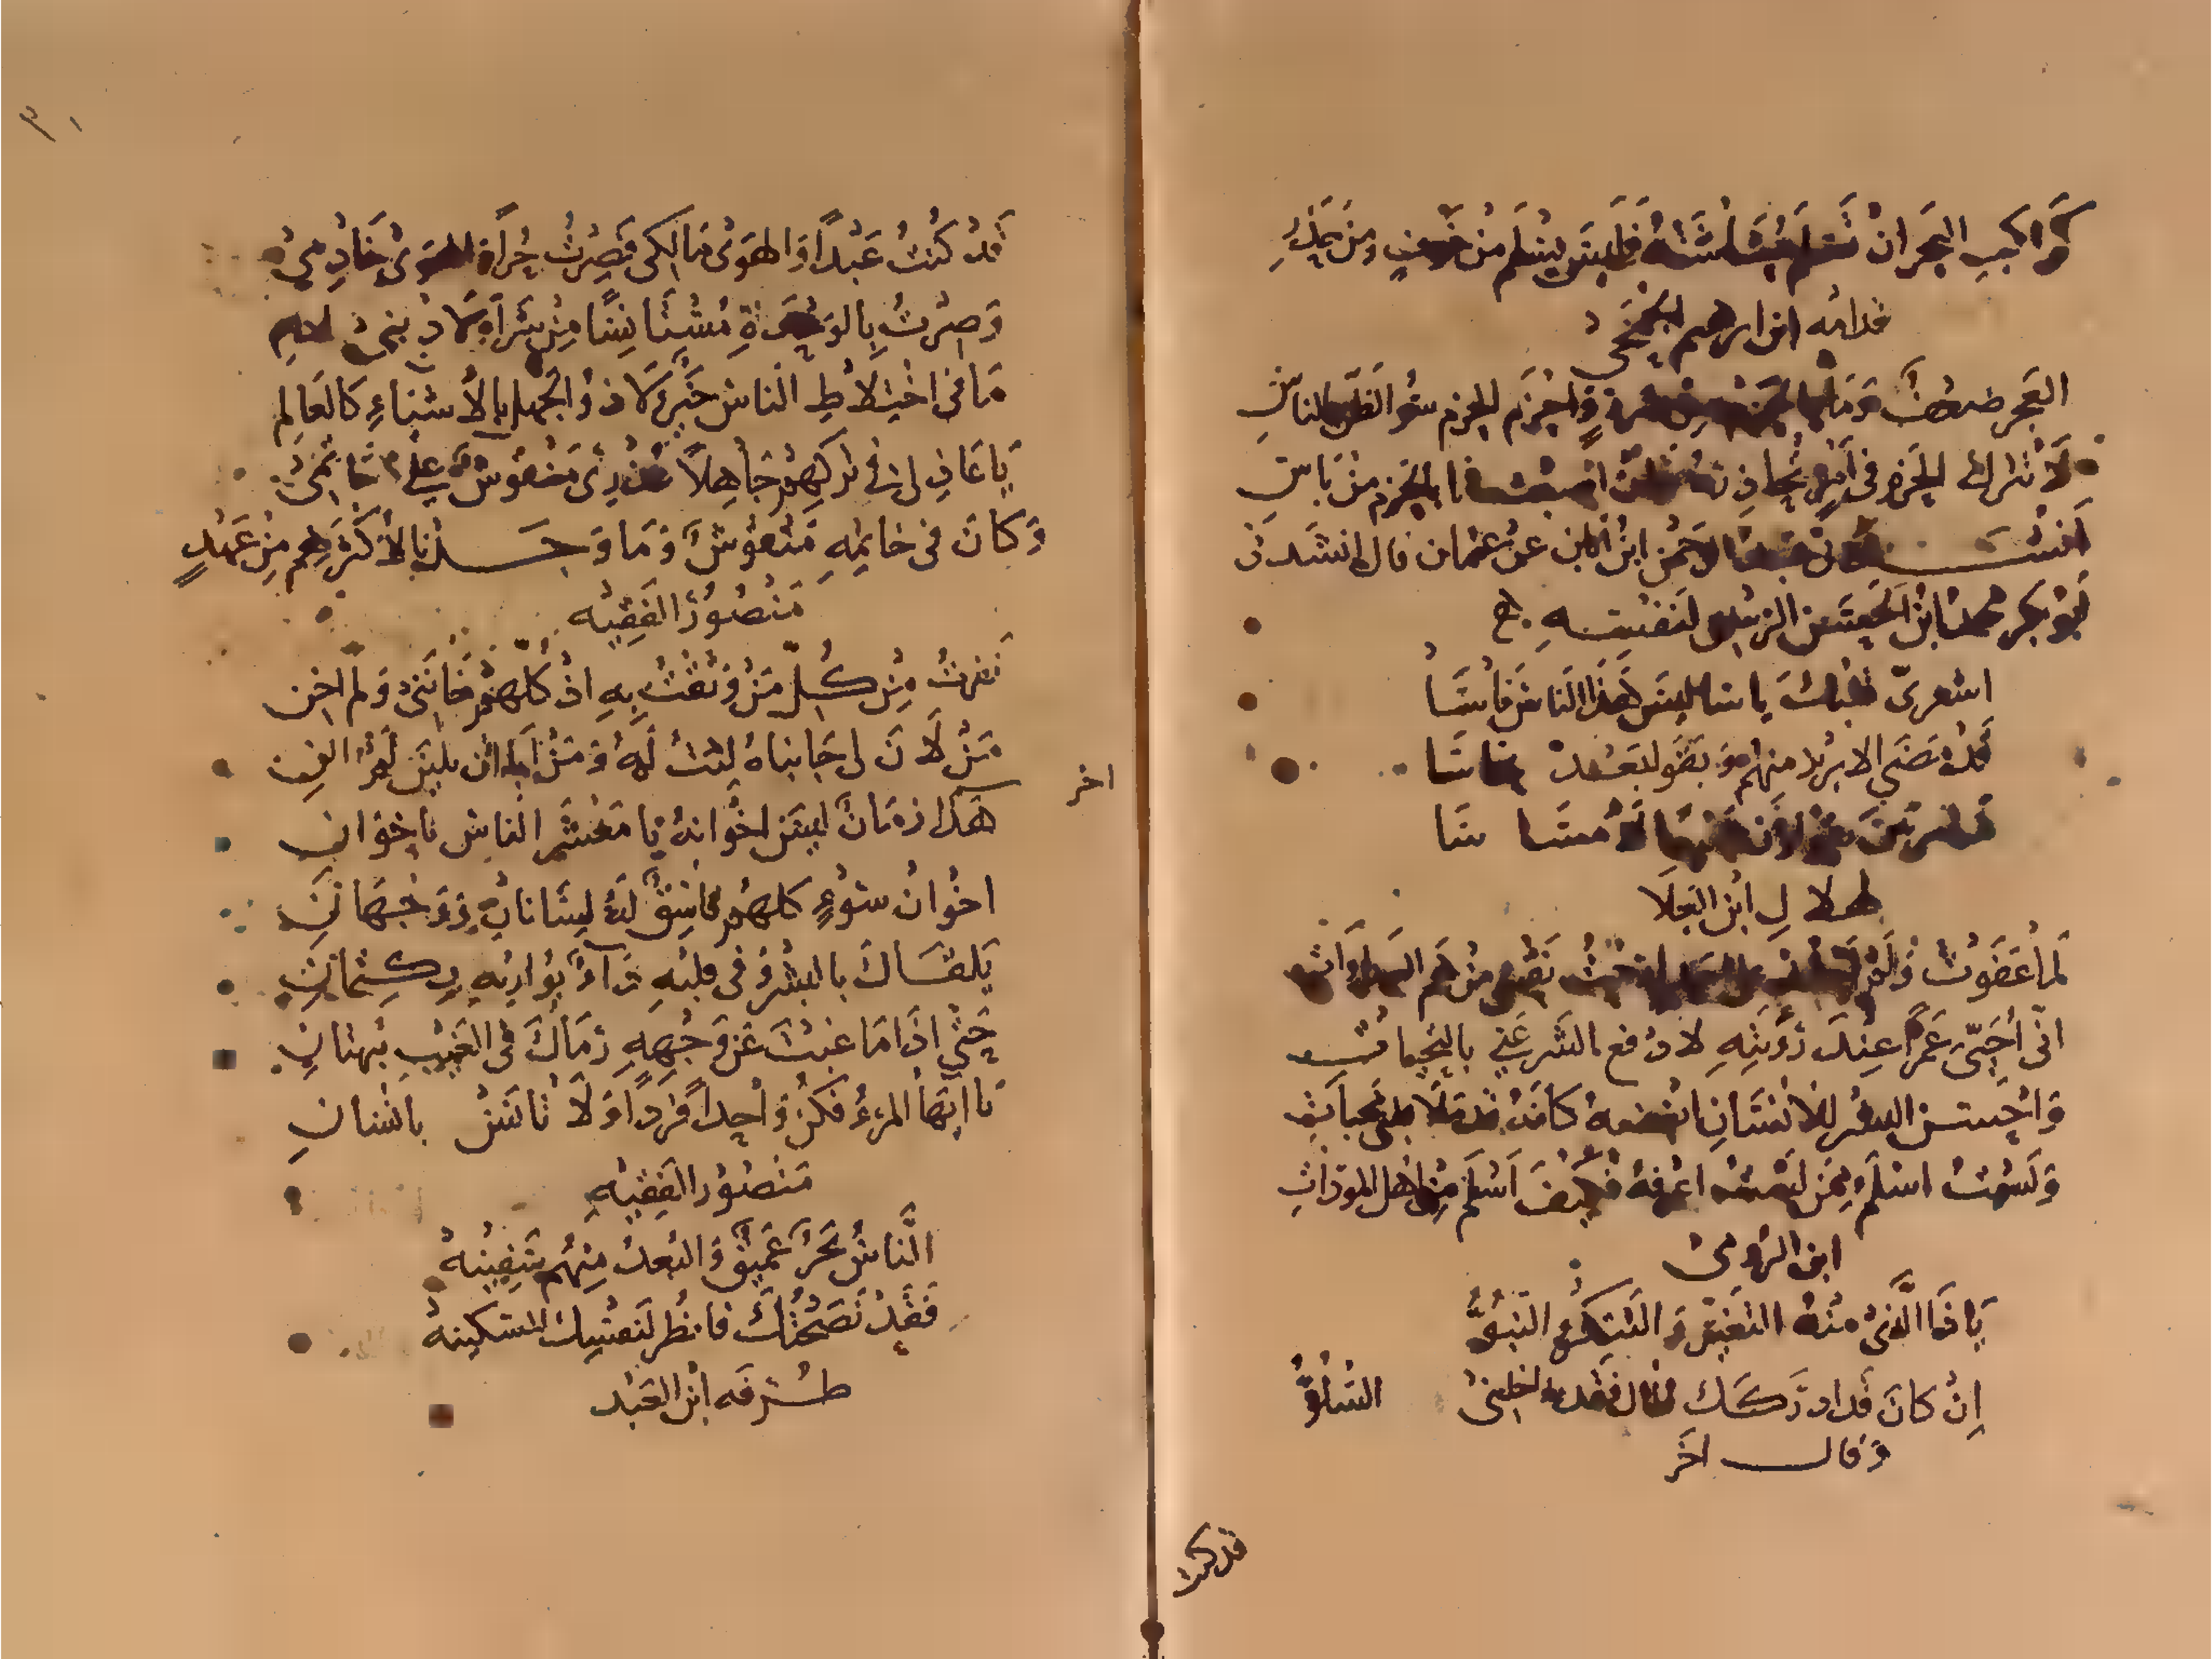 كراكب البحر ان تسلم حشاشته فليس يسلم من خوف ومن حذر
العجز ضعف وما بالحزم من ضرر واحزم الحزم سوء الظن بالناس
لا تترك الحزم في امر تحاذره فان امنت فما بالحزم من باس
عبد الرحمن ابن عن عثمان قال انشدني
ابو بكر محمد ابن الحسن الزبيدي لنفسه
اشعرن قلبك ياسا ليس هذا الناس ناسا
قد مضى الابريز منهم وبقوا بعد نحاسا
هلال ابن العلا
لما عفوت ولم احقد على احد ارحت نفسي من هم العداوات
اني احيي عدوي عند رؤيته لادفع الشر عني بالتحيات
واحسن البشر للانسان ابغضه كانه قد ملا قلبي محبات
ولست اسلم ممن لست اعرفه فكيف اسلم من اهل المودات
ابن الرومي
يا ذا الذي منه التغير والتنكر والنبو
ان كان قد ادركك ملال فقد اخلني السلو
وقال اخر
قد كنت
قد كنت عبدا والهوى مالكي فصرت حرا والهوى خادمي
وصرت بالوحدة مستانسا من شر اولاد بني ادم
ما في اختلاط الناس خير ولا ذو الجهل بالاشياء كالعالم
يا عاذلي في تركهم جاهلا عذري منقوش على خاتمي
وكان في خاتمه منقوش وما وجدنا لاكثرهم من عهد
منصور الفقيه
نفرت من كل من وثقت به اذ كلهم خانني ولم اخن
من لان لي جانباه لنت له ومن ابا ان يلين لم الن
اخر
هذا زمان ليس اخوانه يا معشر الناس باخوان
اخوان سوء كلهم فاسق له لسانان ووجهان
يلقاك بالبشر وفي قلبه داء يواريه بكتمان
حتى اذا ما غبت عن وجهه رماك في الغيب ببهتان
يا ايها المرء فكن واحدا فردا ولا تانس بانسان
منصور الفقيه
الناس بحر عميق والبعد منهم سفينه
فقد نصحتك فانظر لنفسك المسكينه
طرفه ابن العبد